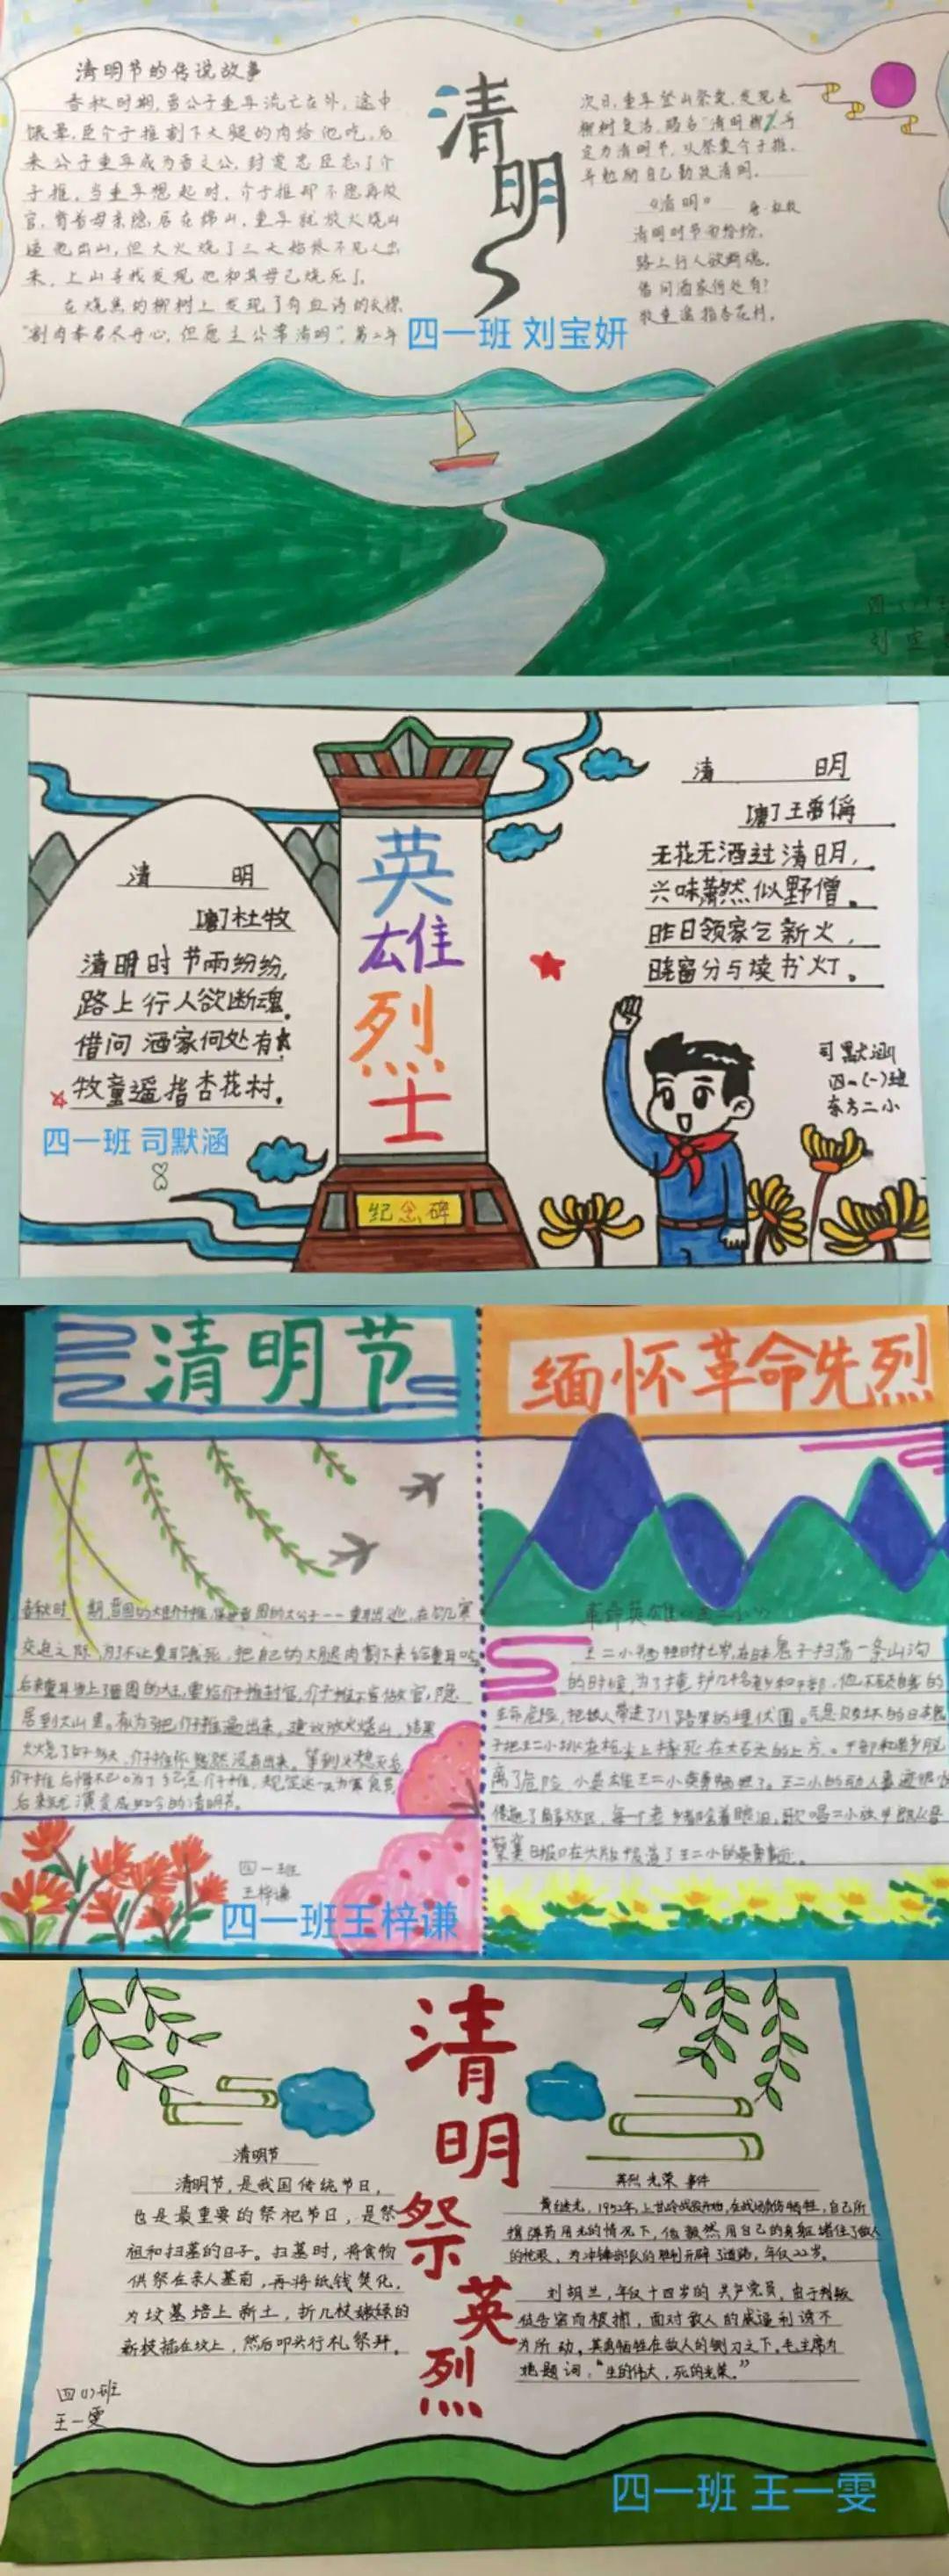 清明节的传说故事
春秋时期,晋公子重耳流亡在外,途中
饿晕,臣介子推割下大腿的肉给他吃,后
来公子重耳成为晋文公,封赏忠臣忘了介
子推,当重耳想起时,介子推却不愿再做
官,背着母亲隐居在绵山,重耳就放火烧山
逼他出山,但大火烧了三天始终不见人出
来,上山寻找发现他和其母已烧死了。
在烧焦的柳树上发现了有血诗的衣襟
“割肉奉君尽丹心,但愿主公常清明”,第二年
清明
次日,重耳登山祭奠,发现老
柳树复活,赐名“清明柳”
定为清明节,以祭奠介子推,
并勉励自己勤政清明。
《清明》 唐·杜牧
清明时节雨纷纷,
路上行人欲断魂。
借问酒家何处有?
牧童遥指杏花村。
四一班 刘宝妍
清 明
[唐]杜牧
清明时节雨纷纷,
路上行人欲断魂。
借问酒家何处有
牧童遥指杏花村。
四一班 司默涵
英雄烈士
纪念碑
清 明
[唐]王禹偁
无花无酒过清明,
兴味萧然似野僧。
昨日领家乞新火,
晓窗分与读书灯。
司默涵
四(一)班
东方二小
清明节
春秋时期,晋国的大臣介子推,保护晋国的大公子——重耳出逃,在饥寒
交迫之际,为了不让重耳饿死,把自己的大腿肉割下来给重耳吃
后来重耳当上了晋国的大王,要给介子推封官,介子推不肯做官,隐
居到大山里。有为了把介子推逼出来,建议放火烧山,结果
后来就演变成如今的清明节。
四一班
王梓谦
四一班王梓谦
缅怀革命先烈
王二小牺牲时十七岁,在日本鬼子扫荡一条山沟
的时候,为了掩护几千名老乡和干部,他不顾自己的
生命危险,把敌人带进了八路军的埋伏圈。气急败坏的日本鬼
子把王二小挑在枪尖上摔死在大石头的上方。干部和老乡脱
离了危险,小英雄王二小英勇牺牲了。王二小的动人事迹很快
传遍了解放区,每一个老乡都含着眼泪,歌唱二小放牛郎
清明祭英烈
清明节
清明节,是我国传统节日,
也是最重要的祭祀节日,是祭
祖和扫墓的日子。扫墓时,将食物
供祭在亲人墓前,再将纸钱焚化,
为坟墓培上新土,折几枝嫩绿的
新枝插在坟上,然后叩头行礼祭拜。
四(1)班
王一雯
英烈光荣事件
黄继光,1952年,上甘岭战役开始,在战场负伤牺牲,自己所
携弹药用光的情况下,他毅然用自己的身躯堵住了敌人
的枪眼,为冲锋部队的胜利开辟了道路,年仅22岁。
刘胡兰,年仅十四岁的共产党员,由于判叛
徒告密而被捕,面对敌人的威逼利诱不
为所动,其勇牺牲在敌人的铡刀之下。毛主席为
她题词,“生的伟大,死的光荣。”
四一班 王一雯